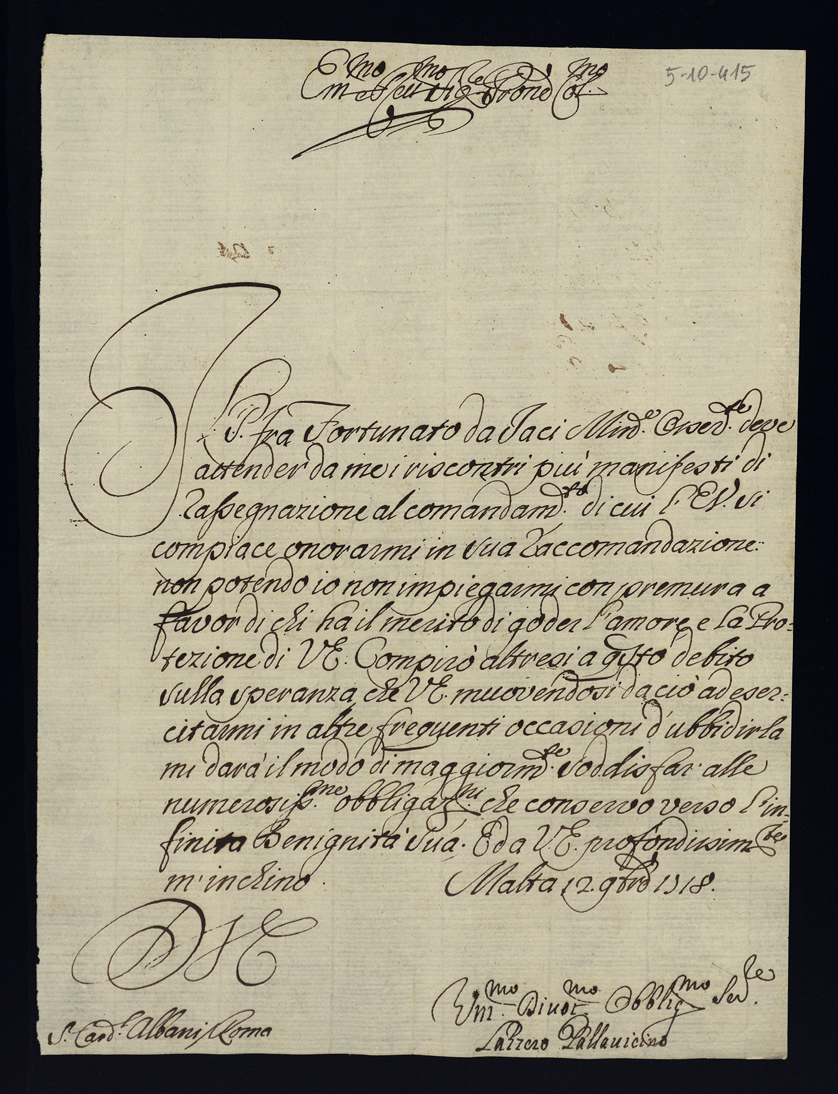 5-10-415
Em.mo et Ecc.mo Sig.re Prōne Col.mo
Il P. fra Fortunato da Jaci Min.e Osser.te deve
attender da me i riscontri piu' manifesti di
rassegnazione al comandam.to di cui l'EV. si
compiace onorarmi in sua raccomandazione:
non potendo io non impiegarmi con premura a
favor di chi ha il merito di goder l'amore, e la Pro=
tezione di VE. Compirò altresi a q̃sto debito
sulla speranza, che VE. muovendosi da ciò ad eser=
citarmi in altre frequenti occasioni d'ubbidirla
mi darà il modo di maggiorm.te soddisfar' alle
numerosiss.me obbligaz.ni che conservo verso l'in=
finita Benignità Sua. E da V.E. profondissim.te
m'inchino. Malta 12. 9bre 1718.
DVE
Um.mo Divot.mo Obblig.mo Ser.re
Lazzero Pallavicino
S.r Card.l Albani Roma